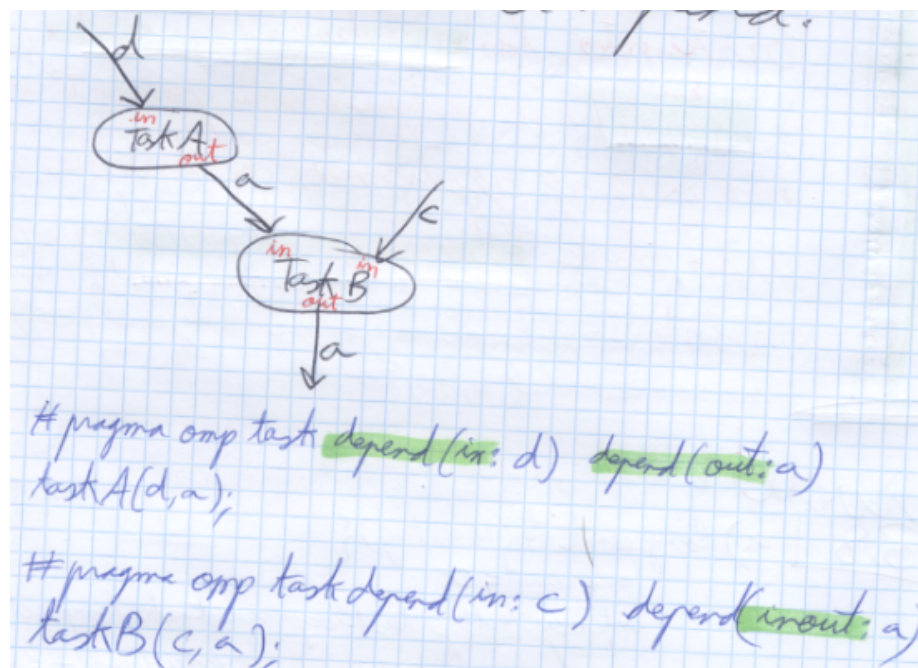 d
in
Task A
out
a
c
in
in
Task B
out
a
#pragma omp task depend(in: d) depend(out: a)
taskA(d,a);
#pragma omp task depend(in: c) depend(inout: a)
taskB(c,a);